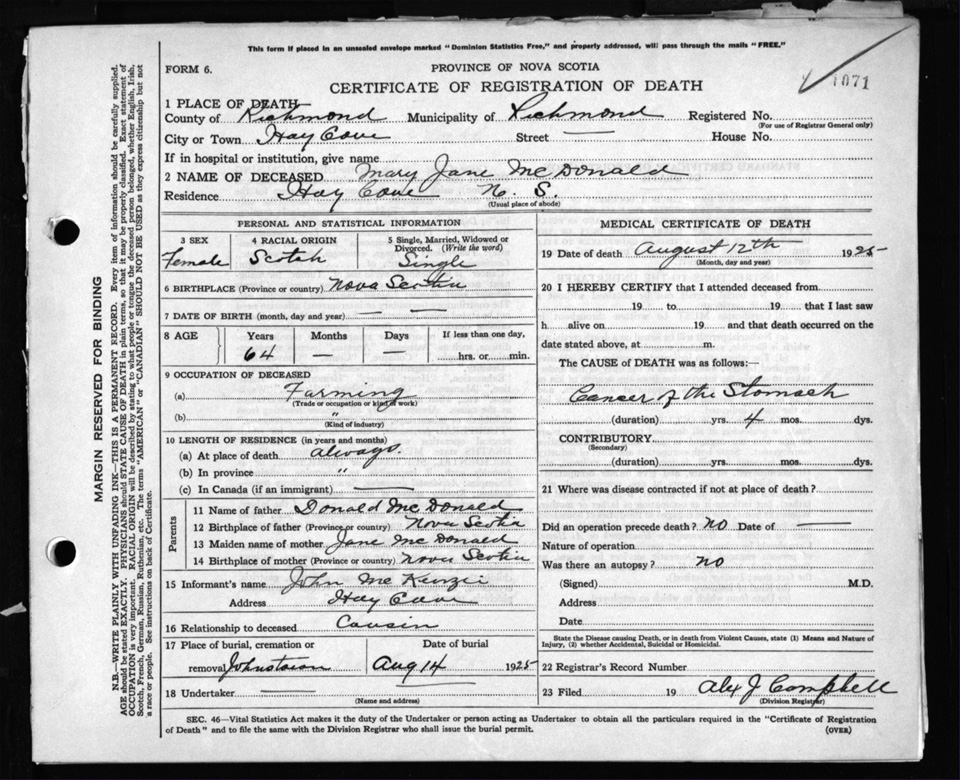 This form if placed in an unsealed envelope marked "Dominion Statistics Free," and properly addressed, will pass through the mails "FREE."
FORM 6.
PROVINCE OF NOVA SCOTIA
CERTIFICATE OF REGISTRATION OF DEATH
1071
1 PLACE OF DEATH
County of Richmond Municipality of Richmond Registered No.
(For use of Registrar General only)
City or Town Hay Cove Street — House No.
If in hospital or institution, give name
2 NAME OF DECEASED Mary Jane McDonald
Residence Hay Cove N. S.
(Usual place of abode)
PERSONAL AND STATISTICAL INFORMATION
3 SEX
Female
4 RACIAL ORIGIN
Scotch
5 Single, Married, Widowed or Divorced. (Write the word)
Single
6 BIRTHPLACE (Province or country) Nova Scotia
7 DATE OF BIRTH (month, day and year) — —
8 AGE Years Months Days If less than one day,
64 — — hrs. or min.
9 OCCUPATION OF DECEASED
(a) Farming
(Trade or occupation or kind of work)
(b) "
(Kind of industry)
10 LENGTH OF RESIDENCE (in years and months)
(a) At place of death always.
(b) In province "
(c) In Canada (if an immigrant) —
Parents
11 Name of father Donald McDonald
12 Birthplace of father (Province or country) Nova Scotia
13 Maiden name of mother Jane McDonald
14 Birthplace of mother (Province or country) Nova Scotia
15 Informant's name John McKenzie
Address Hay Cove
16 Relationship to deceased Cousin
17 Place of burial, cremation or Date of burial
removal Johnstown Aug 14 1925
18 Undertaker — —
(Name and address)
MEDICAL CERTIFICATE OF DEATH
19 Date of death August 12th 1925
(Month, day and year)
20 I HEREBY CERTIFY that I attended deceased from
19 to 19 that I last saw
h alive on 19 and that death occurred on
date stated above, at m.
The CAUSE of DEATH was as follows:—
Cancer of the Stomach
(duration) yrs. 4 mos. dys.
CONTRIBUTORY
(Secondary)
(duration) yrs. mos. dys.
21 Where was disease contracted if not at place of death?
Did an operation precede death? No Date of —
Nature of operation
Was there an autopsy? no
(Signed) M.D.
Address
Date
State the Disease causing Death, or in death from Violent Causes, state (1) Means and Nature of
Injury, (2) whether Accidental, Suicidal or Homicidal.
22 Registrar's Record Number
23 Filed 19 Alex J Campbell
(Division Registrar)
SEC. 46—Vital Statistics Act makes it the duty of the Undertaker or person acting as Undertaker to obtain all the particulars required in the "Certificate of Registration
of Death" and to file the same with the Division Registrar who shall issue the burial permit.
(OVER)
MARGIN RESERVED FOR BINDING
N.B.—WRITE PLAINLY WITH UNFADING INK—THIS IS A PERMANENT RECORD. Every item of information should be carefully supplied.
AGE should be stated EXACTLY. PHYSICIANS should STATE CAUSE OF DEATH in plain terms, so that it may be properly classified. Exact statement of
OCCUPATION is very important. RACIAL ORIGIN will be described by stating to what people or tongue the deceased person belonged, whether English, Irish,
Scotch, French, German, Russian, Ruthenian, etc. The terms "AMERICAN" or "CANADIAN" SHOULD NOT BE USED as they express citizenship but not
a race or people. See instructions on back of Certificate.